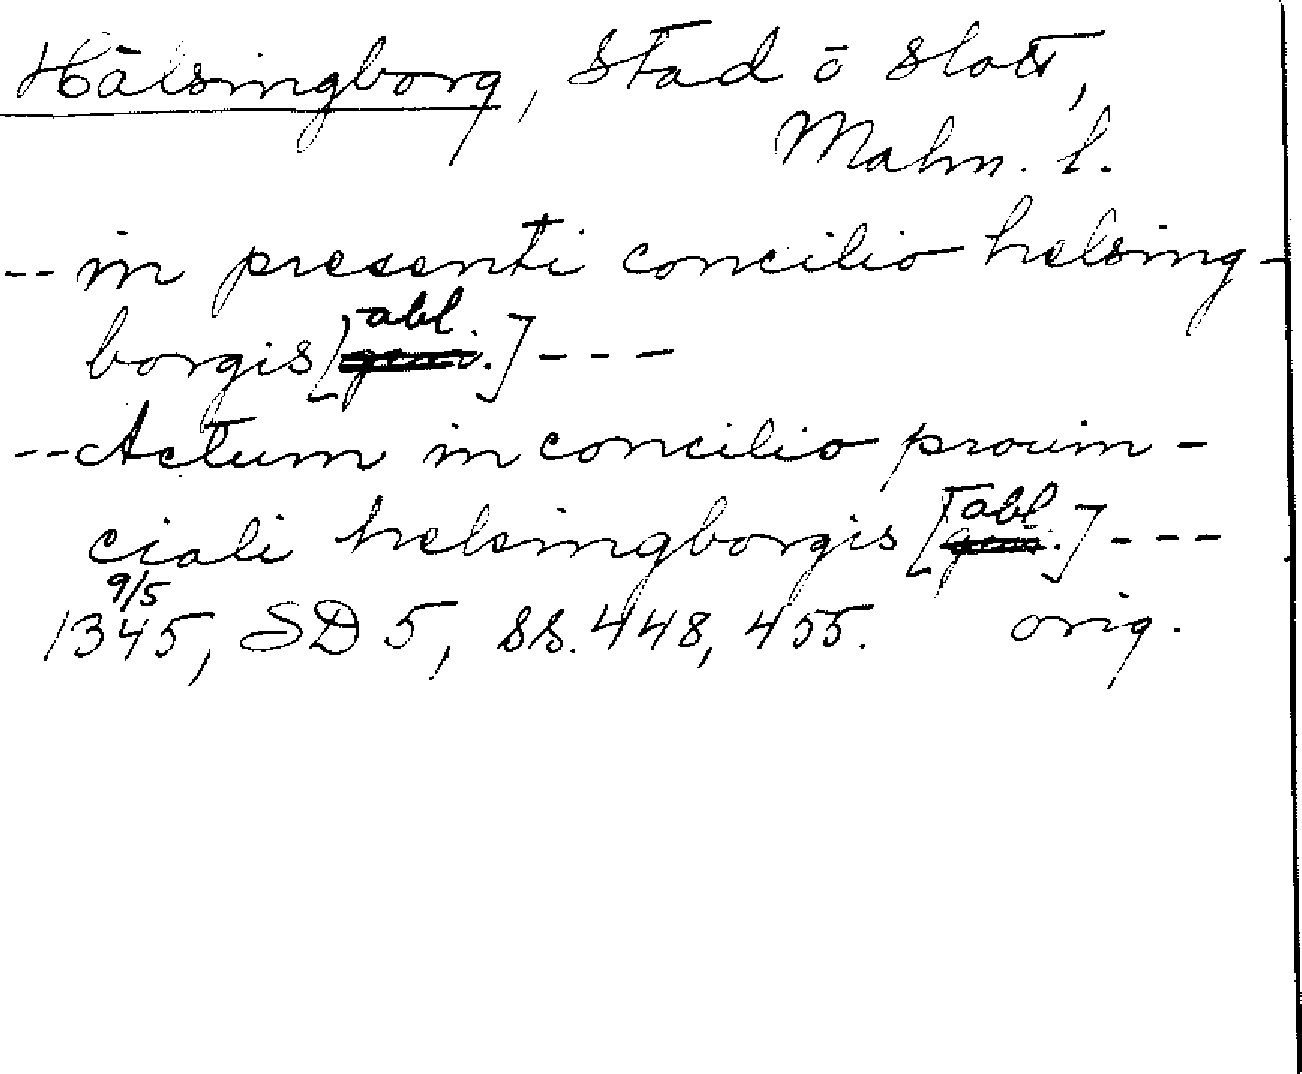 Hälsingborg, stad o slott,
Malm. l.
-- in presenti concilio helsing-
borgis [abl.] ---
-- Actum in concilio prouin-
ciali helsingborgis [abl.] ---
9/5
1345, SD 5, ss. 448, 455. orig.